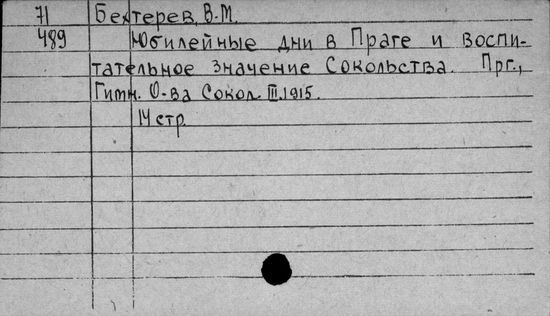 71 Бехтерев, В.М.
489 Юбилейные дни в Праге и воспи-
тательное значение Сокольства. Прг.,
Гимн. О-ва Сокол. III.1915.
14 стр.